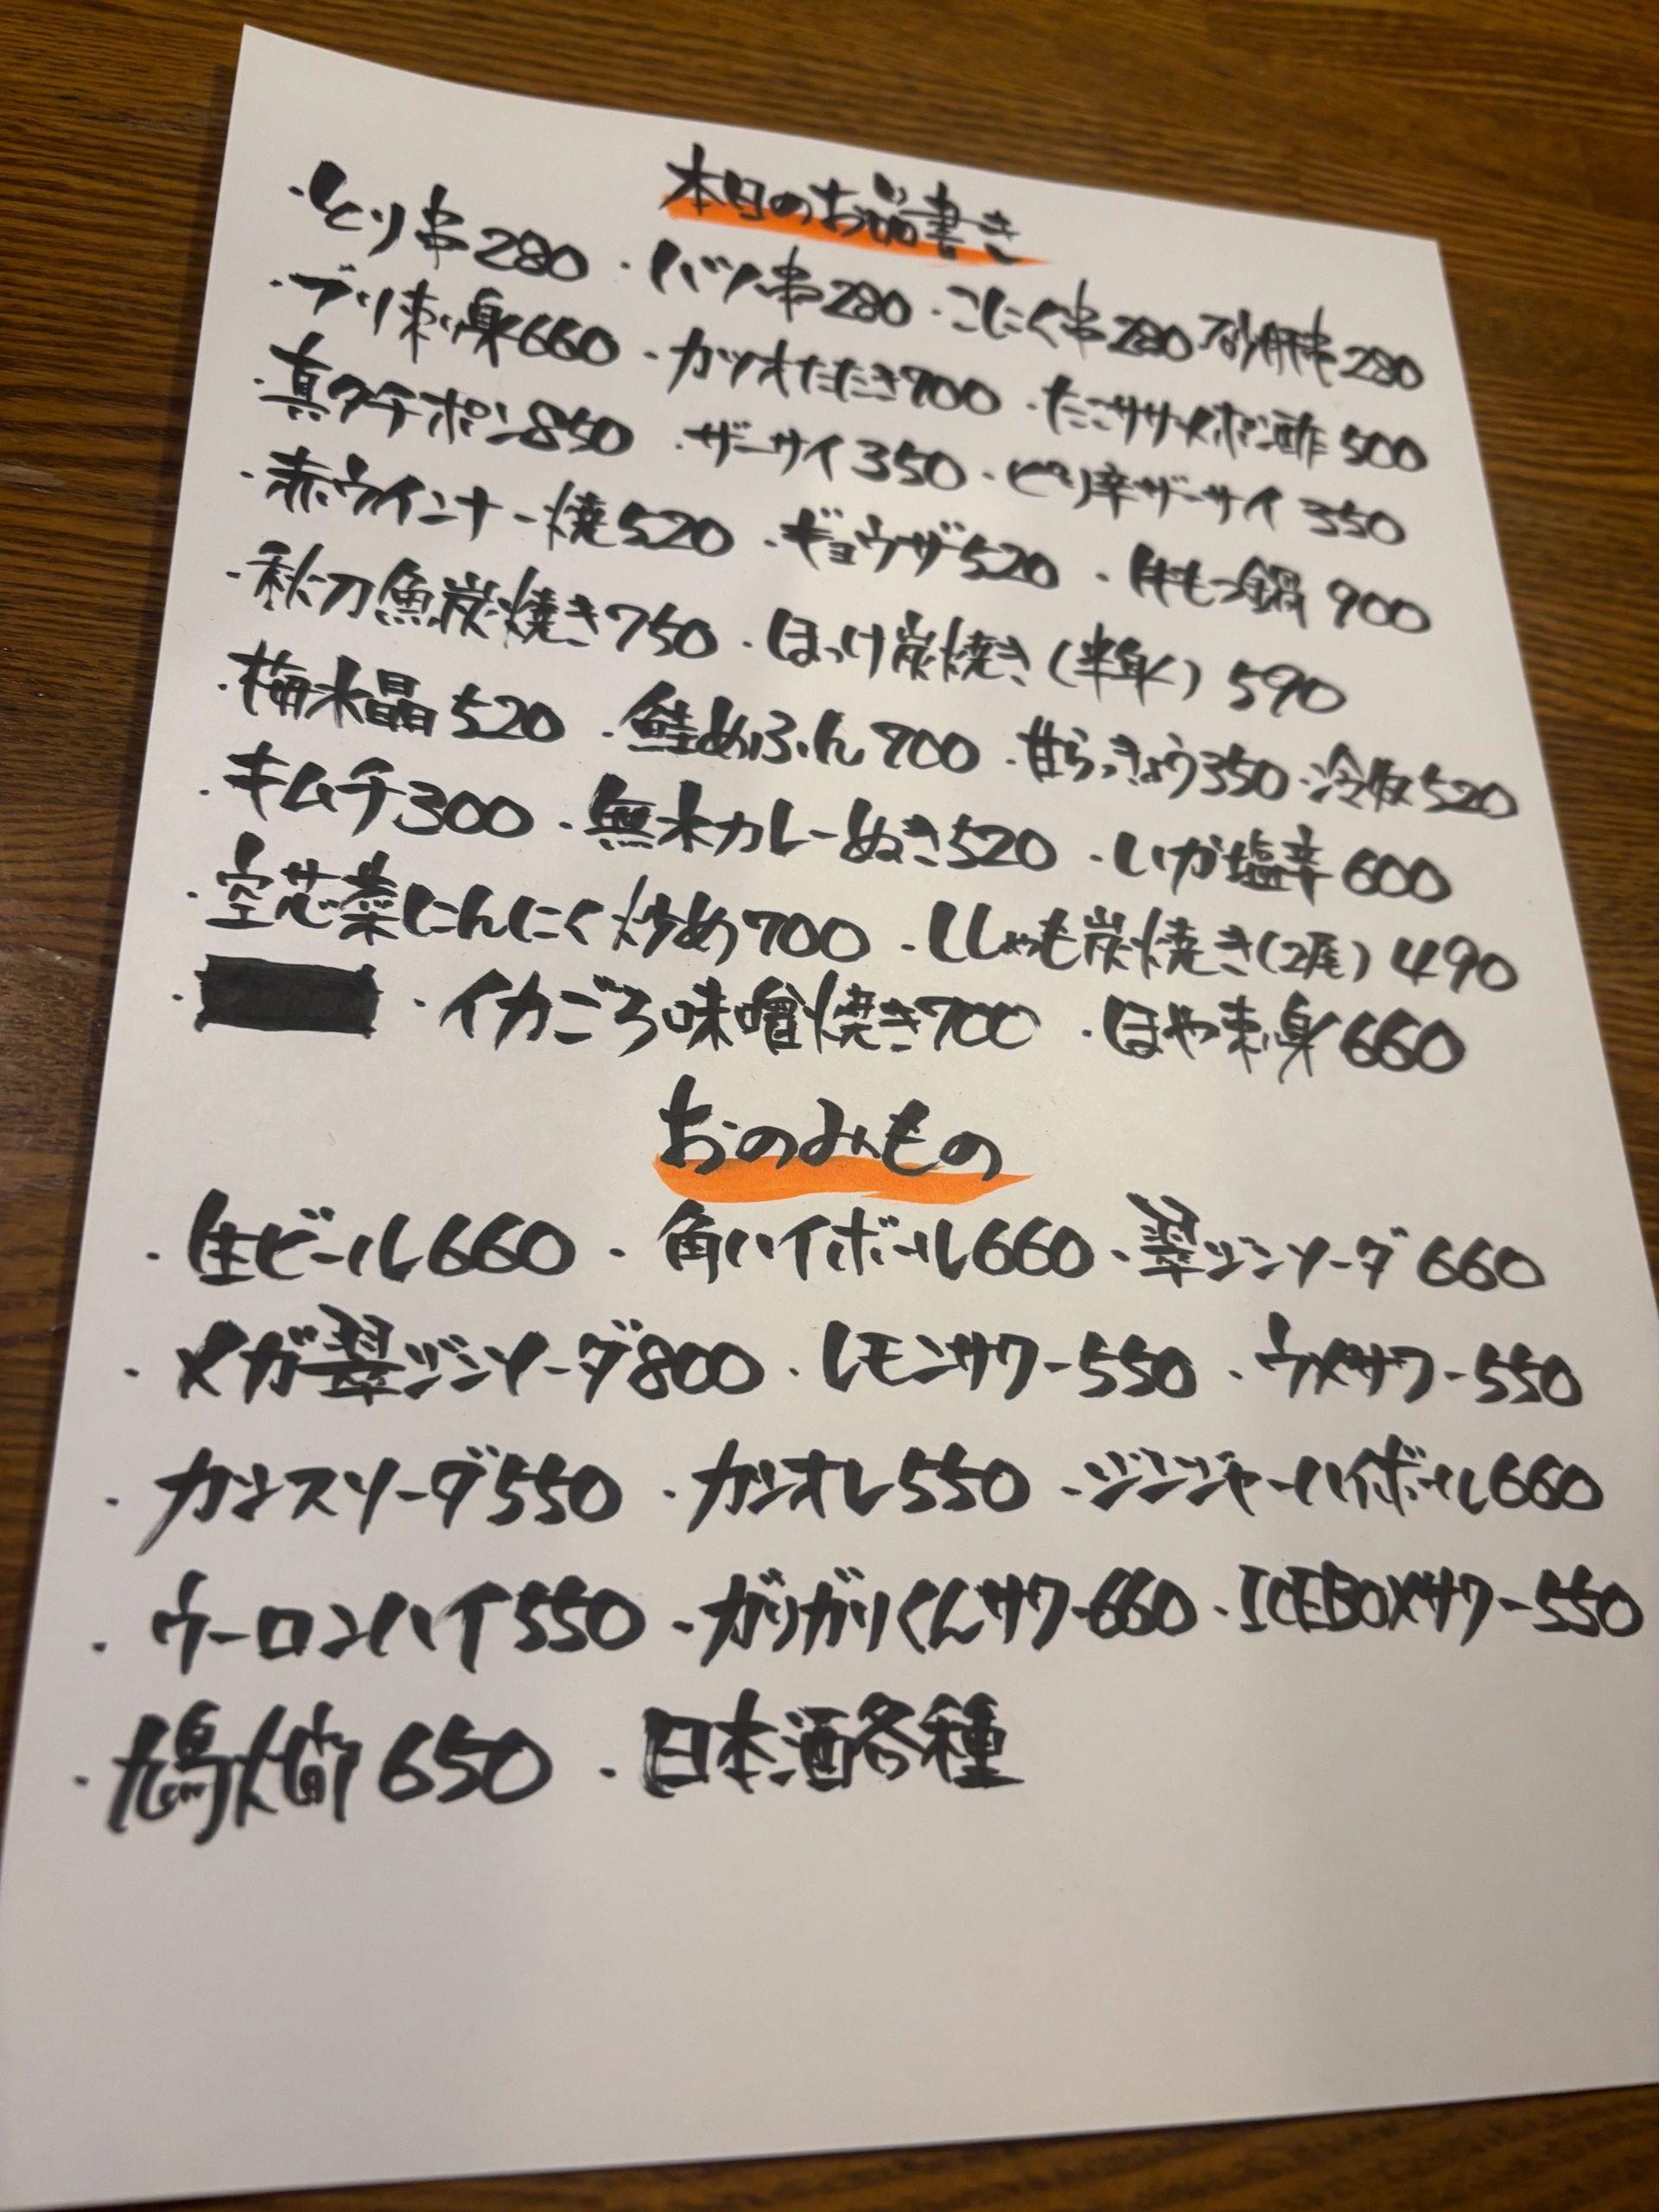 本日のお品書き
・とり串280 ・ハツ串280 ・こにく串280 砂肝串280
・ブリ刺身660 ・カツオたたき700 ・たこササメポン酢500
・真タチポン850 ・ザーサイ350 ・ピリ辛ザーサイ350
・赤ウインナー焼520 ・ギョウザ520 ・牛もつ鍋900
・秋刀魚炭焼き750 ・ほっけ炭焼き(半身)590
・梅水晶520 ・鮭めふん700 ・甘らっきょう350 ・冷奴520
・キムチ300 ・無水カレーぬき520 ・いか塩辛600
・空芯菜にんにく炒め700 ・ししゃも炭焼き(2尾)490
・ ・イカごろ味噌焼き700 ・ほや刺身660
おのみもの
・生ビール660 ・角ハイボール660 ・翠ジンソーダ660
・メガ翠ジンソーダ800 ・レモンサワー550 ・ウメサワー550
・カシスソーダ550 ・カシオレ550 ・ジンジャーハイボール660
・ウーロンハイ550 ・ガリガリくんサワー660 ・ICEBOXサワー550
・650 ・日本酒各種